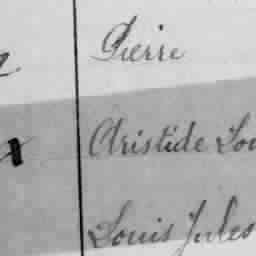 Pierre
Aristide Lou
Louis Jules